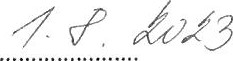 1. 8. 2023